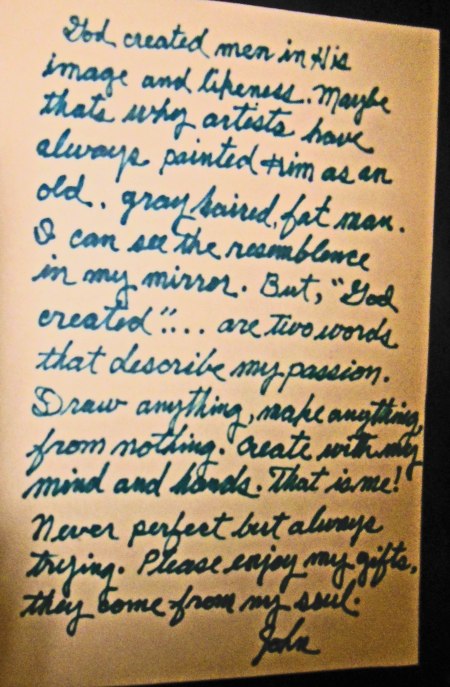 God created men in His
image and likeness. Maybe
thats why artists have
always painted Him as an
old, gray haired, fat man.
I can see the resemblence
in my mirror. But, "God
created".... are two words
that describe my passion.
Draw anything, make anything
from nothing. Create with my
mind and hands. That is me!
Never perfect but always
trying. Please enjoy my gifts,
they come from my soul.
John